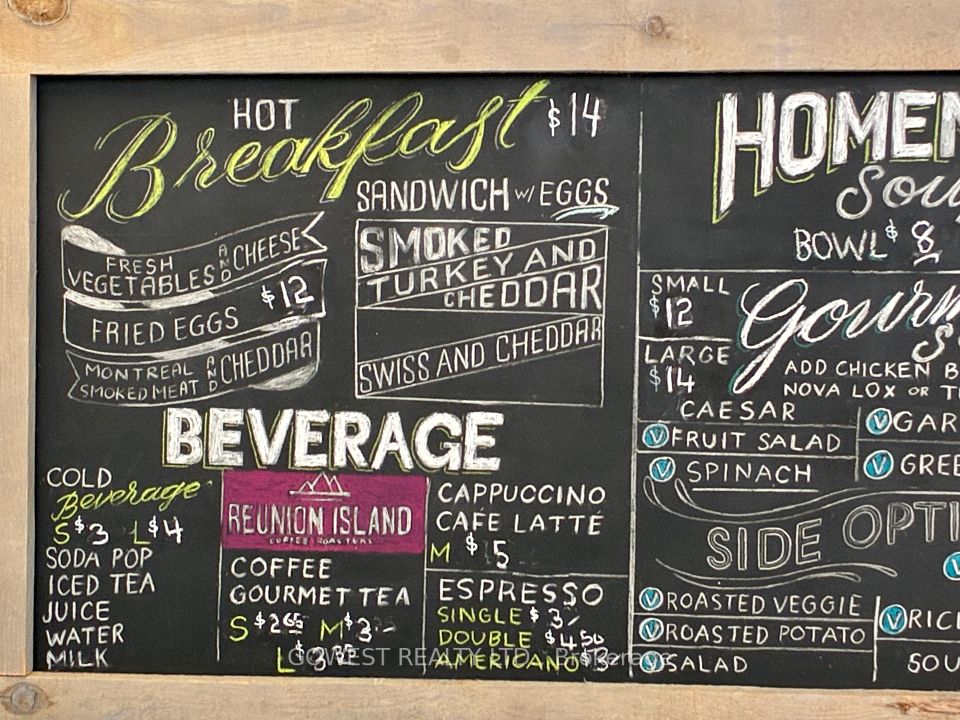 HOT
Breakfast $14
SANDWICH w/ EGGS
FRESH
VEGETABLES AND CHEESE
FRIED EGGS $12
MONTREAL
SMOKED MEAT AND CHEDDAR
SMOKED
TURKEY AND
CHEDDAR
SWISS AND CHEDDAR
BEVERAGE
COLD
Beverage
S $3 L $4
SODA POP
ICED TEA
JUICE
WATER
MILK
REUNION ISLAND
COFFEE ROASTERS
COFFEE
GOURMET TEA
S $2.65 M $3.-
L
CAPPUCCINO
CAFE LATTE
M $5
ESPRESSO
SINGLE $3.-
DOUBLE $4.50
AMERICANO $3
HOMEM
Sou
BOWL $8
SMALL
$12
LARGE
$14
Gourm
S
ADD CHICKEN B
NOVA LOX OR T
CAESAR
V FRUIT SALAD
V SPINACH
V GAR
V GREE
SIDE OPTI
V
V ROASTED VEGGIE
V ROASTED POTATO
V SALAD
V RIC
SOU
GOWEST REALTY LTD., Brokerage